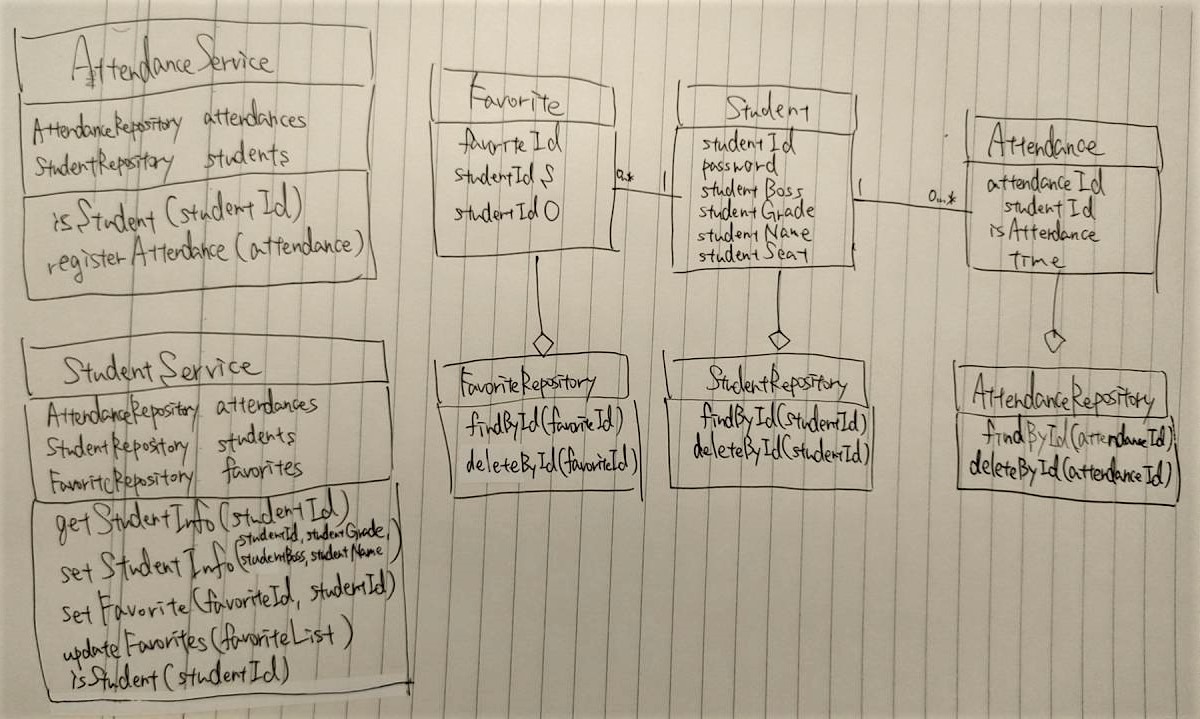 AttendanceService
AttendanceRepository attendances
StudentRepository students
isStudent(studentId)
registerAttendance(attendance)
StudentService
AttendanceRepository attendances
StudentRepository students
FavoriteRepository favorites
getStudentInfo(studentId)
setStudentInfo(studentId, studentGrade,
studentBoss, studentName)
setFavorite(favoriteId, studentId)
updateFavorites(favoriteList)
isStudent(studentId)
Favorite
favoriteId
studentIdS
studentIdO
0..*
1
Student
studentId
password
studentBoss
studentGrade
studentName
studentSeat
1
0...*
Attendance
attendanceId
studentId
isAttendance
time
FavoriteRepository
findById(favoriteId)
deleteById(favoriteId)
StudentRepository
findById(studentId)
deleteById(studentId)
AttendanceRepository
findById(attendanceId)
deleteById(attendanceId)